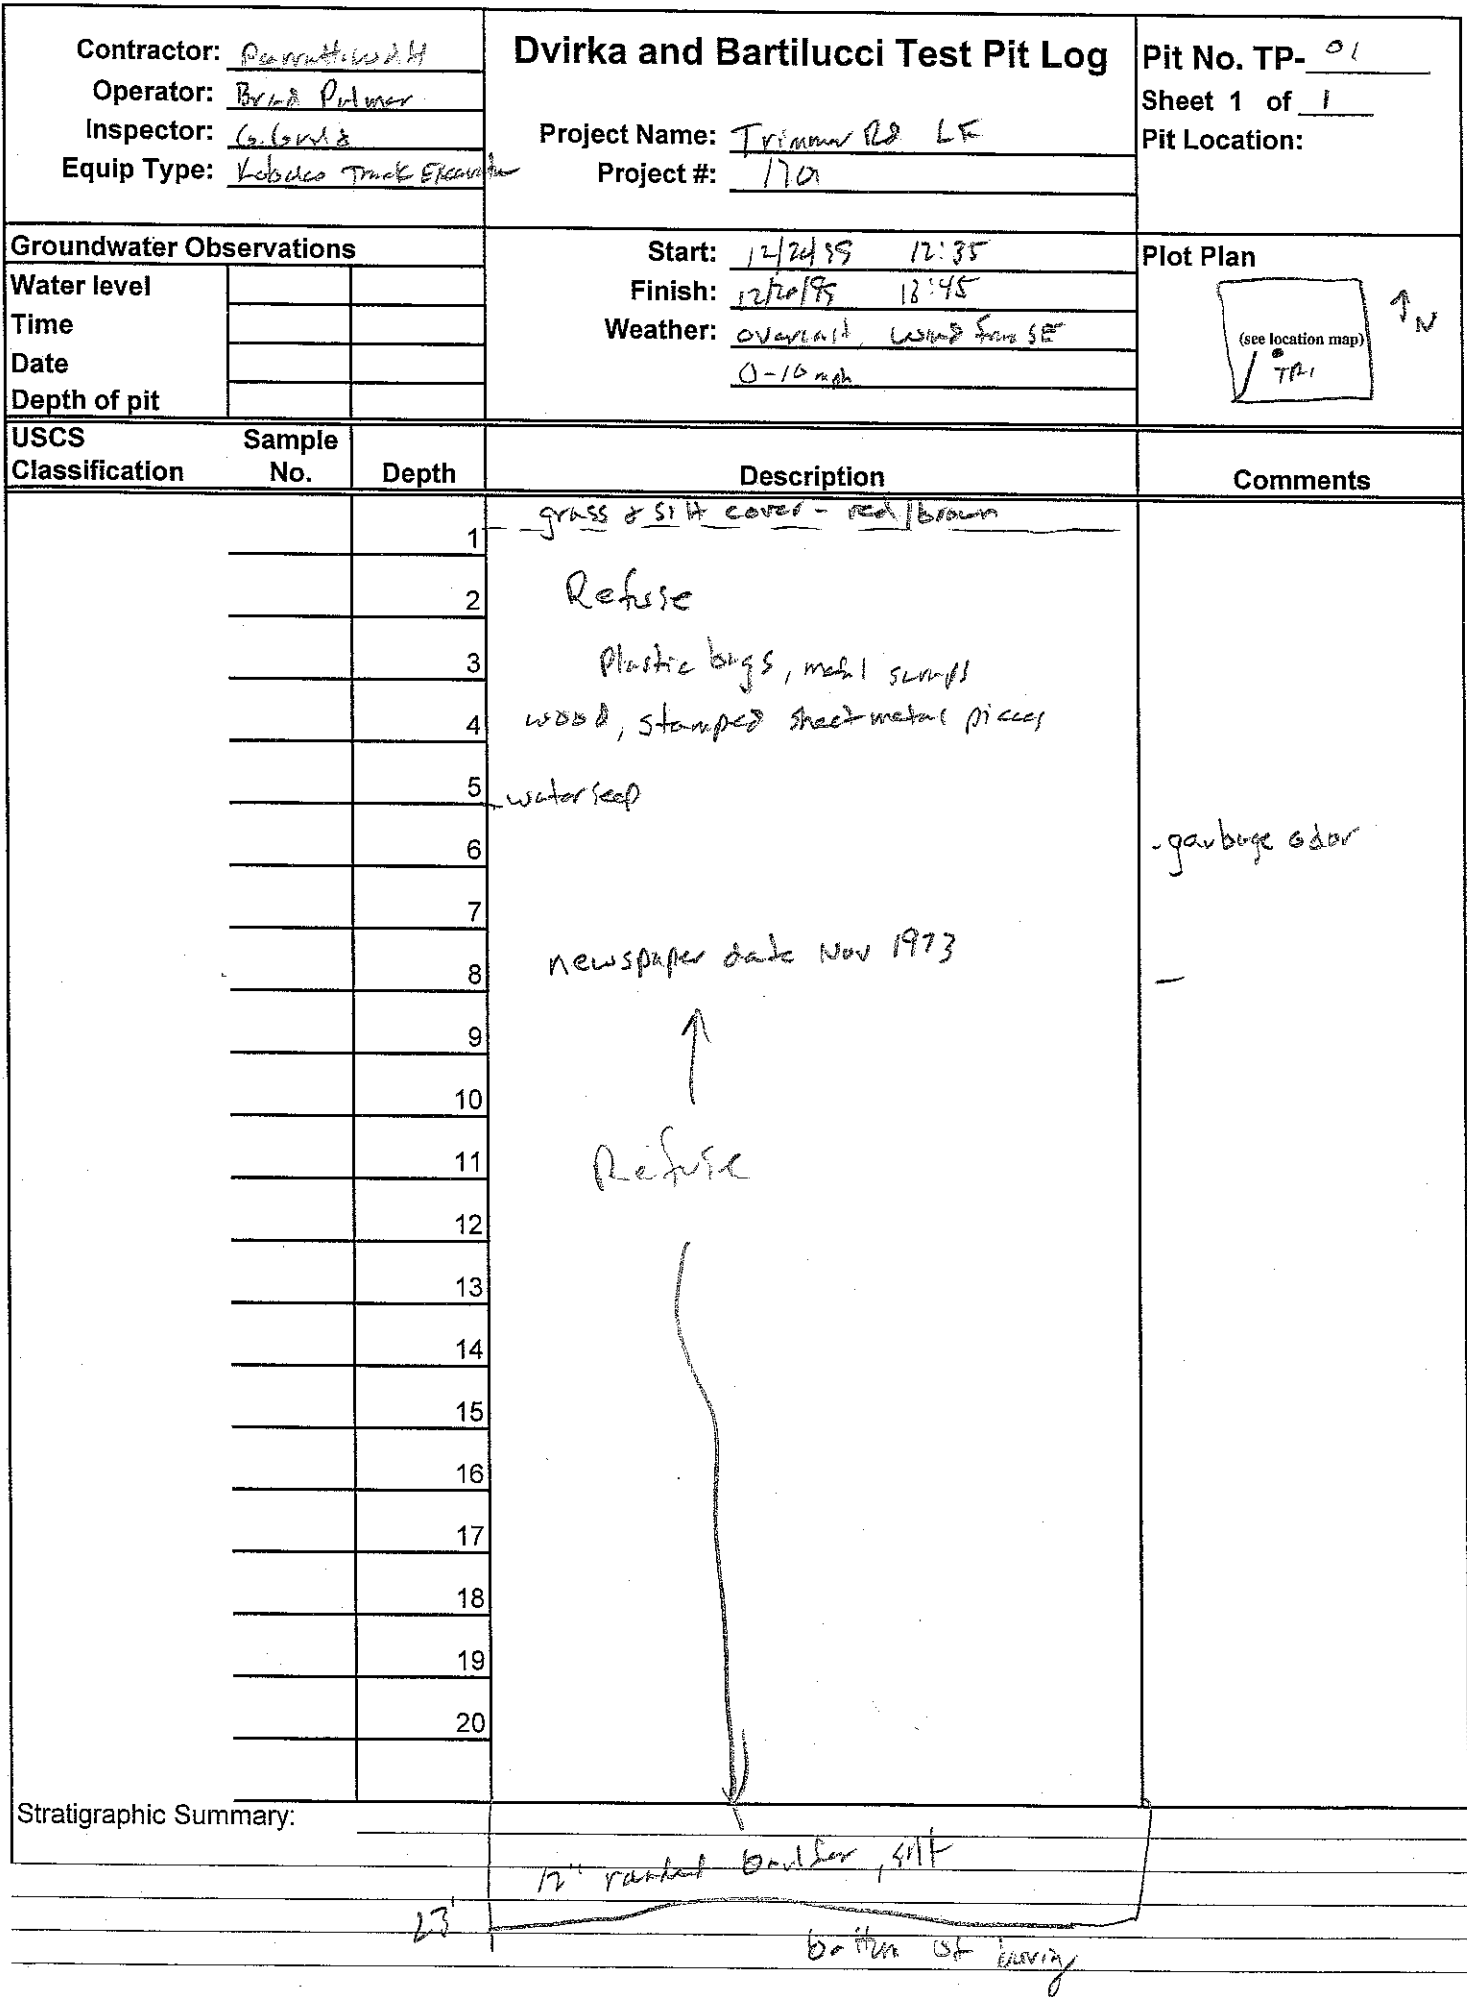 Contractor: Parratt-Wolff
Operator: Brad Palmer
Inspector: G. Gould
Equip Type: Kobelco Track Excavator
Dvirka and Bartilucci Test Pit Log
Project Name: Trimmer Rd LF
Project #:
Pit No. TP- 01
Sheet 1 of 1
Pit Location:
Groundwater Observations
Water level
Time
Date
Depth of pit
Start: 12:35
Finish: 13:45
Weather: overcast, wind from SE
0-10 mph
Plot Plan
(see location map)
TP-1
N
USCS Classification
Sample No.
Depth
Description
Comments
grass & silt cover - red/brown
1
2 Refuse
3 Plastic bags, metal scraps
4 wood, stamped sheet metal pieces
5 - water seep
6 - garbage odor
7
8 newspaper date Nov 1973 -
9
10
11 Refuse
12
13
14
15
16
17
18
19
20
Stratigraphic Summary:
12" rounded boulder, silt
23'
bottom of boring